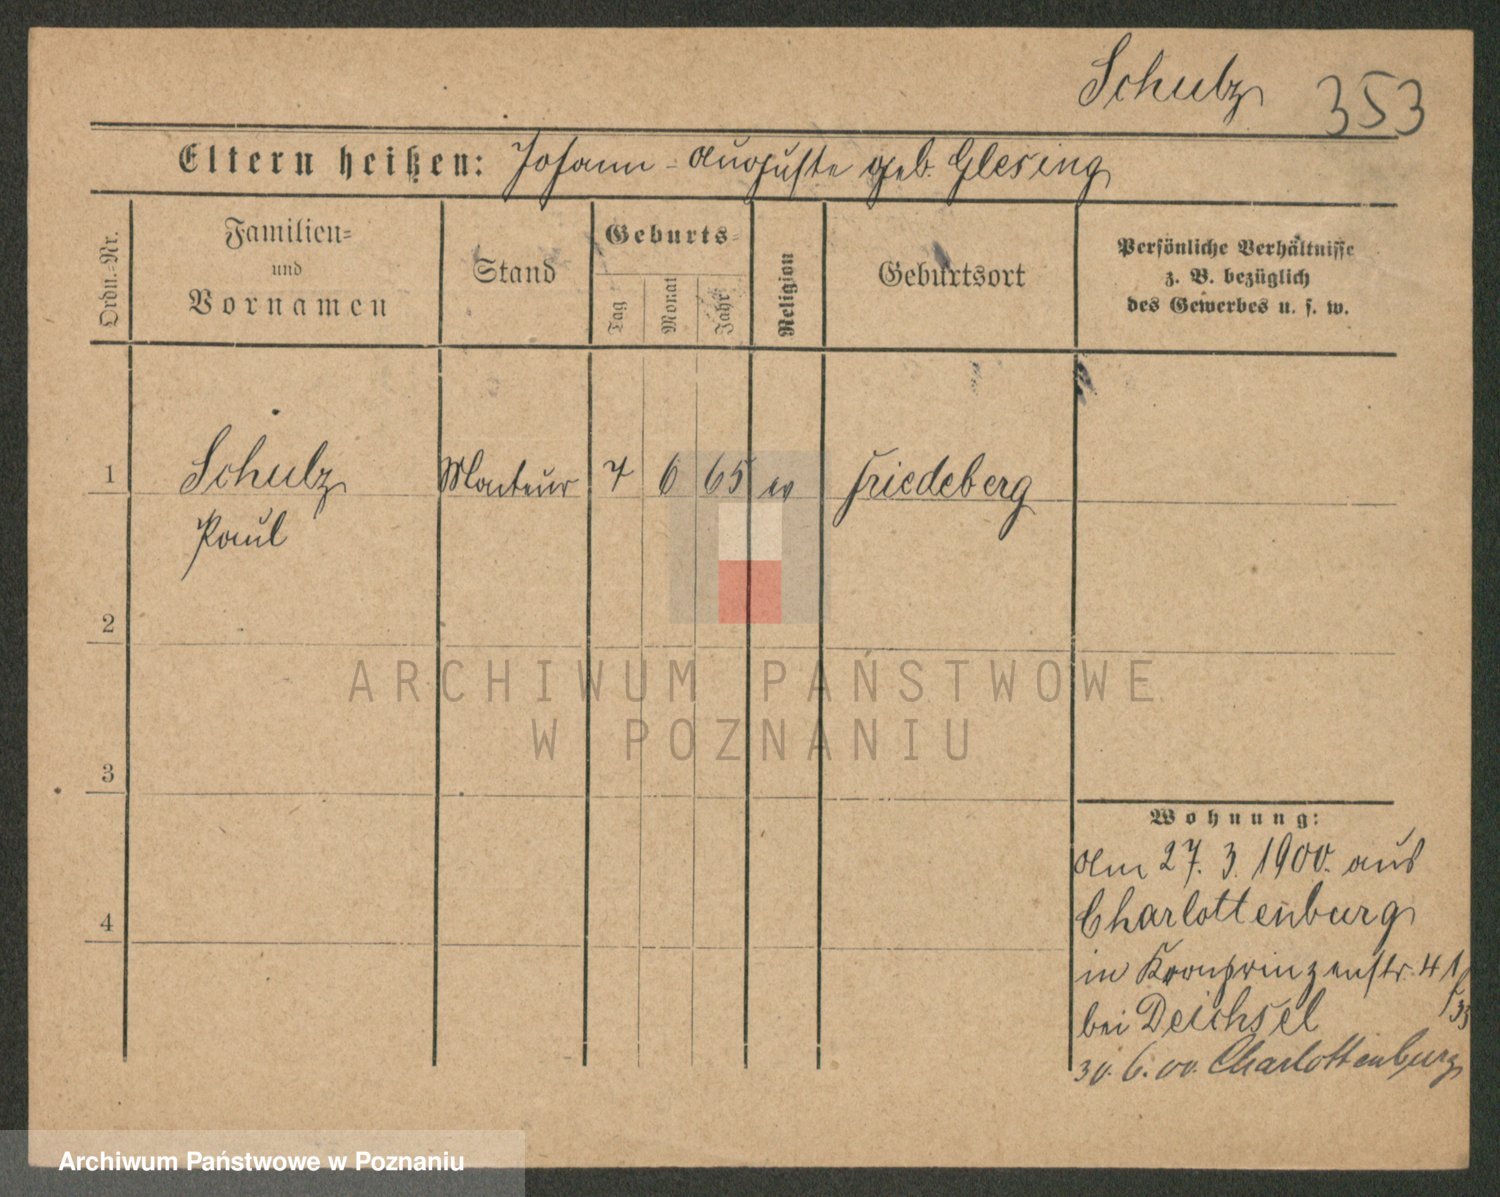 Schulz 353
Eltern heißen: Johann - Auguste geb. Glesing
Ordn.-Nr.
Familien=
und
Vornamen
Stand
Geburts=
Tag
Monat
Jahr
Religion
Geburtsort
Persönliche Verhältnisse
z. B. bezüglich
des Gewerbes u. s. w.
1 Schulz Monteur 7 6 65 ev Friedeberg
Paul
2
ARCHIWUM PAŃSTWOWE
W POZNANIU
3
Wohnung:
Am 27. 3. 1900. aus
4 Charlottenburg
in Kronprinzenstr. 41
bei Deichsel
30. 6. 00. Charlottenburg
Archiwum Państwowe w Poznaniu